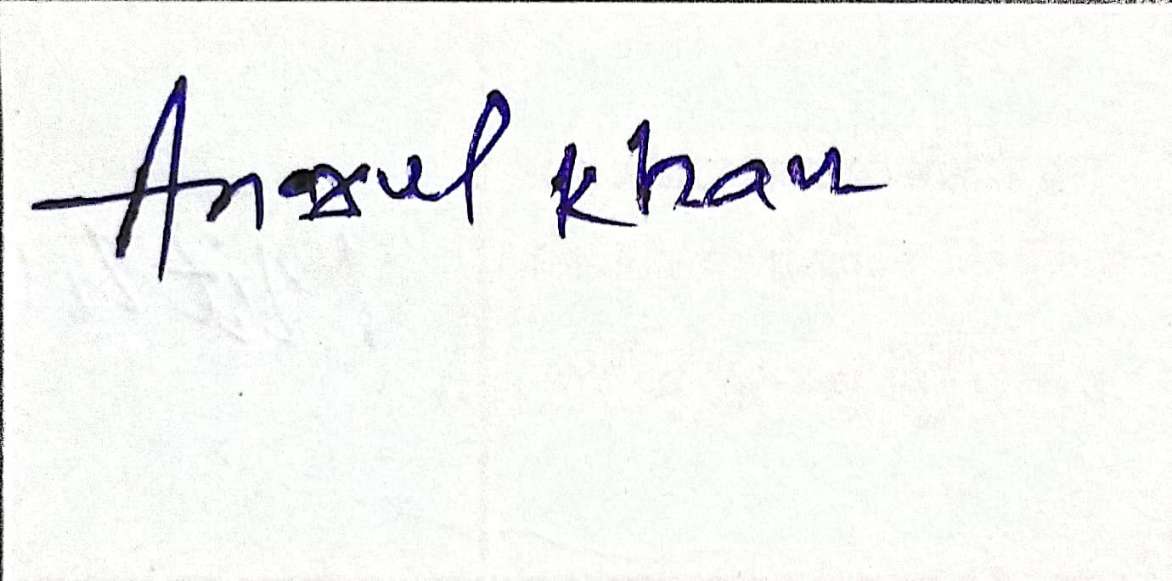 Anzul Khan